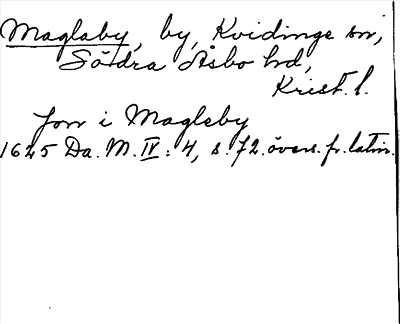 Maglaby, by, Kvidinge sn,
Södra Åsbo hd,
Krist. l.
Jon i Magleby
1625 Da. M. IV: 4, s. 72. övers. fr. latin.